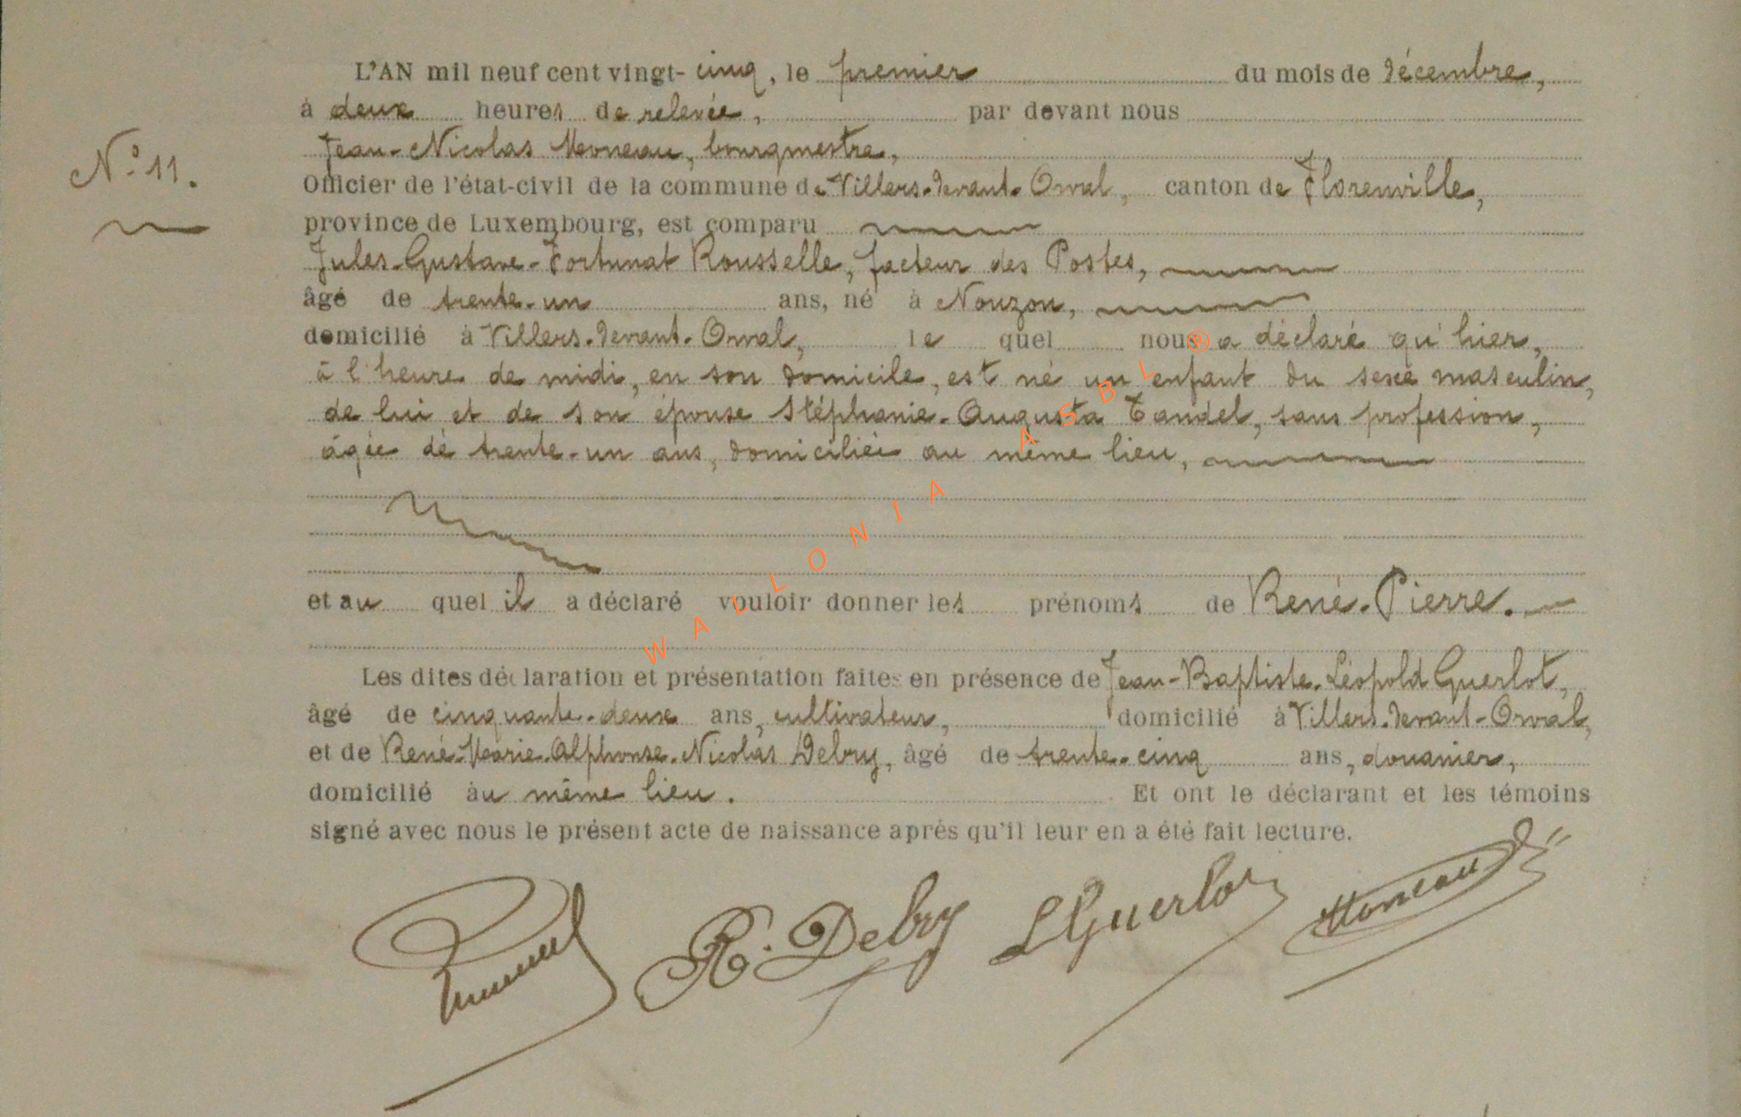 L'AN mil neuf cent vingt-cinq, le premier du mois de décembre,
à deux heures de relevée, par devant nous
Jean-Nicolas Moneau, bourgmestre,
N° 11.
Officier de l'état-civil de la commune de Villers-devant-Orval, canton de Florenville,
province de Luxembourg, est comparu
Jules-Gustave-Fortunat Rousselle, facteur des Postes,
âgé de trente-un ans, né à Nouzon,
domicilié à Villers-devant-Orval, le quel nous a déclaré qu'hier,
à l'heure de midi, en son domicile, est né un enfant du sexe masculin,
de lui et de son épouse Stéphanie-Augusta Tandel, sans profession,
âgée de trente-un ans, domiciliée au même lieu,
et au quel il a déclaré vouloir donner les prénoms de René-Pierre.
Les dites déclaration et présentation faites en présence de Jean-Baptiste-Léopold Guerlot,
âgé de cinquante-deux ans, cultivateur, domicilié à Villers-devant-Orval,
et de René-Marie-Alphonse-Nicolas Debry, âgé de trente-cinq ans, douanier,
domicilié au même lieu. Et ont le déclarant et les témoins
signé avec nous le présent acte de naissance après qu'il leur en a été fait lecture.
R. Debry LGuerlot Moneau
WALLONIA ASBL ®